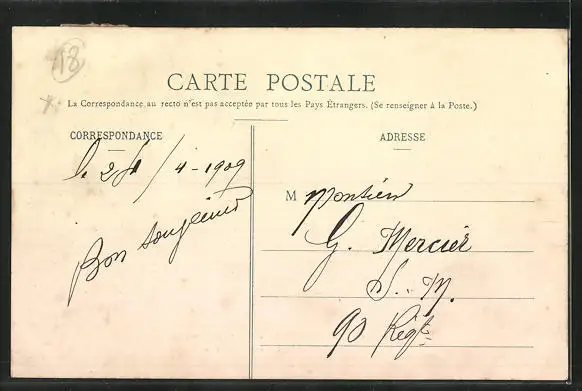 18
CARTE POSTALE
La Correspondance au recto n'est pas acceptée par tous les Pays Étrangers. (Se renseigner à la Poste.)
CORRESPONDANCE
ADRESSE
le 4-1909
Bon
M Monsieur
G. Mercier
S. M.
90 Régt